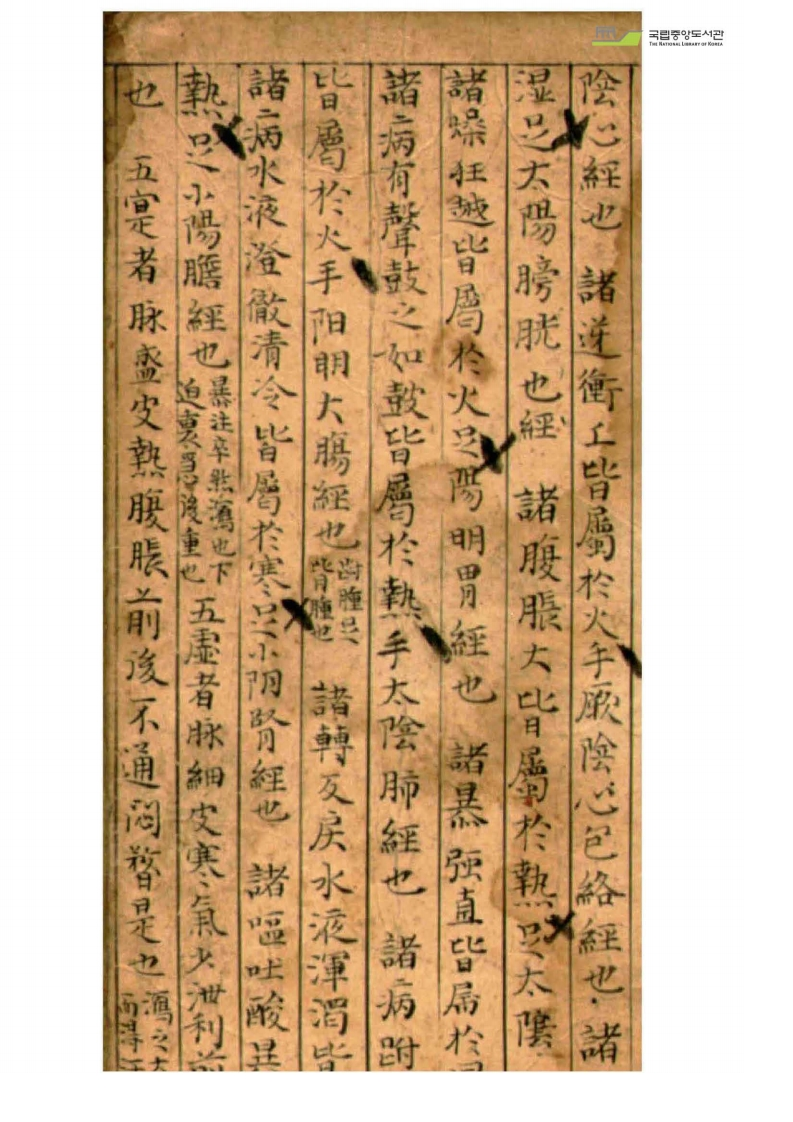 국립중앙도서관
THE NATIONAL LIBRARY OF KOREA
陰心經也 諸逆衝上皆屬於火手厥陰心包絡經也 諸
湿足太陽膀胱也經 諸腹脹大皆屬於熱足太陰
諸躁狂越皆属於火足陽明胃經也 諸暴强直皆属於
諸病有聲鼓之如鼓皆屬於熱手太陰肺經也 諸病胕
皆屬於火手阳明大腸經也 胕腫足 皆腫也 諸轉反戾水液渾濁皆
諸病水液澄徹清冷皆屬於寒足小阴腎經也 諸嘔吐酸
熱足小陽膽經也 暴注卒然瀉也下 迫裏急後重也 五虛者脉細皮寒氣少泄利前
也 五寔者脉盛皮熱腹脹前後不通悶瞀是也 瀉之 而得汗